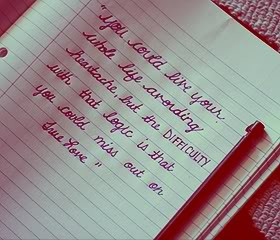 "You could live your
whole life avoiding
heartache, but the DIFFICULTY
with that logic is that
you could miss out on
true love."